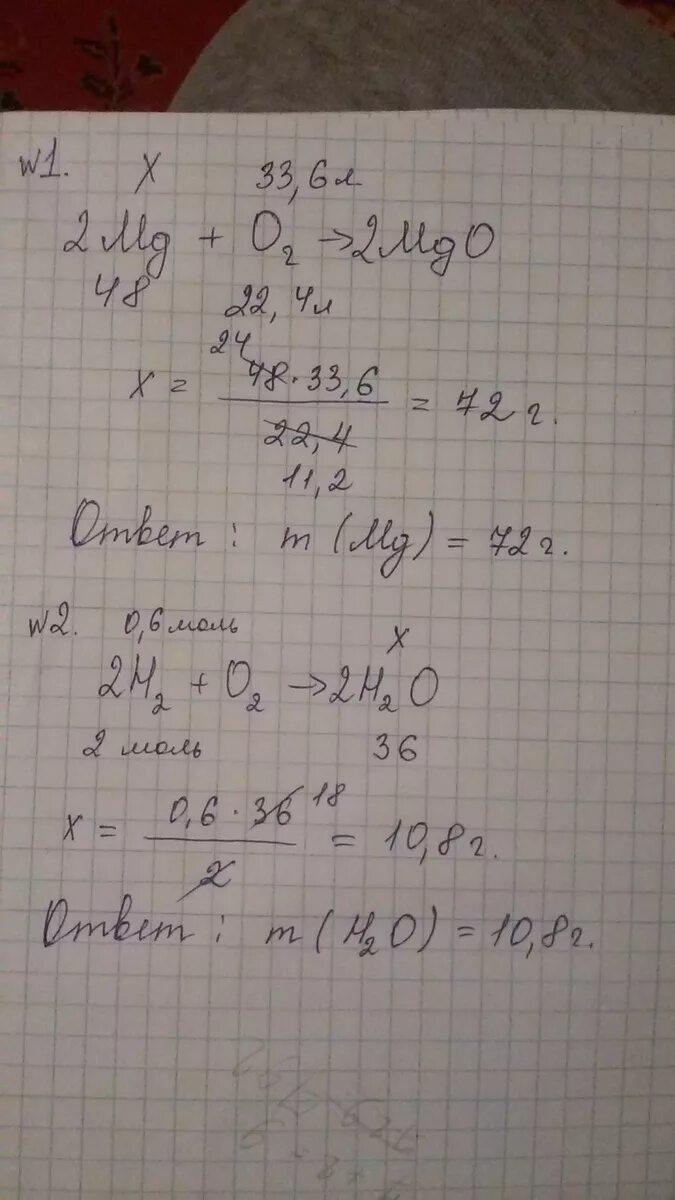 №1. X 33,6 л
2Mg + O₂ → 2MgO
48 22,4 л
24
X = 48 · 33,6 / 22,4 = 72 г.
11,2
Ответ : m (Mg) = 72 г.
№2. 0,6 моль X
2H₂ + O₂ → 2H₂O
2 моль 36
X = 0,6 · 36 / 2 = 10,8 г.
18
Ответ : m (H₂O) = 10,8 г.